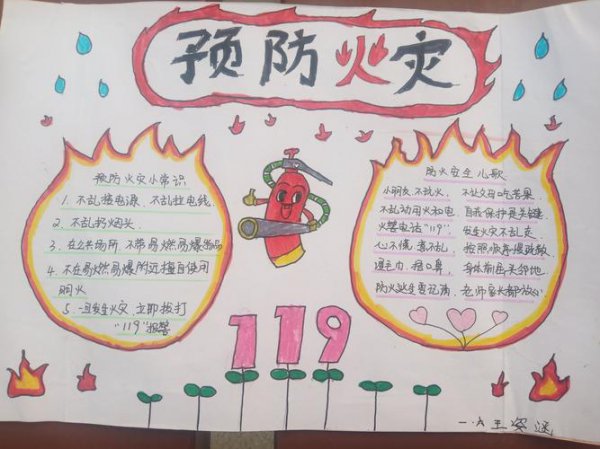 预防火灾
预防火灾小常识
1. 不乱接电源、不乱拉电线.
2. 不乱扔烟头.
3. 在公共场所 不带易燃易爆物品
4. 不在易燃易爆附近擅自使用
明火
5. 一旦发生火灾, 立即拨打
"119"报警
防火安全儿歌
小朋友.不玩火. 不让父母吃苦果.
不乱动用火和电. 自我保护是关键.
火警电话"119". 发生火灾不乱走.
心不慌 意不乱. 按照顺序慢疏散.
湿毛巾. 捂口鼻. 身体前屈头邻地.
防火逃生要记清. 老师家长都放心
119
一.六王